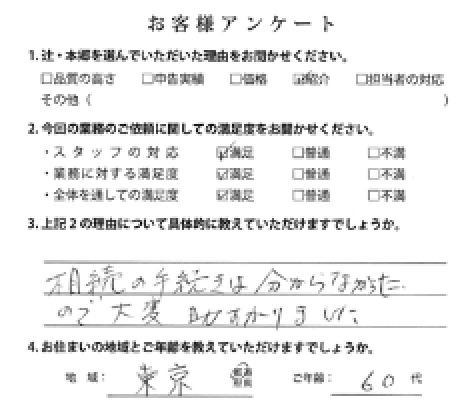 お客様アンケート
1. 辻・本郷を選んでいただいた理由をお聞かせください。
□品質の高さ □申告実績 □価格 ☑紹介 □担当者の対応
その他（ ）
2. 今回の業務のご依頼に関しての満足度をお聞かせください。
・スタッフの対応 ☑満足 □普通 □不満
・業務に対する満足度 ☑満足 □普通 □不満
・全体を通しての満足度 ☑満足 □普通 □不満
3. 上記2の理由について具体的に教えていただけますでしょうか。
相続の手続きは分からなかった
ので大変助かりました
4. お住まいの地域とご年齢を教えていただけますでしょうか。
地域： 東京 都道府県 ご年齢： 60 代